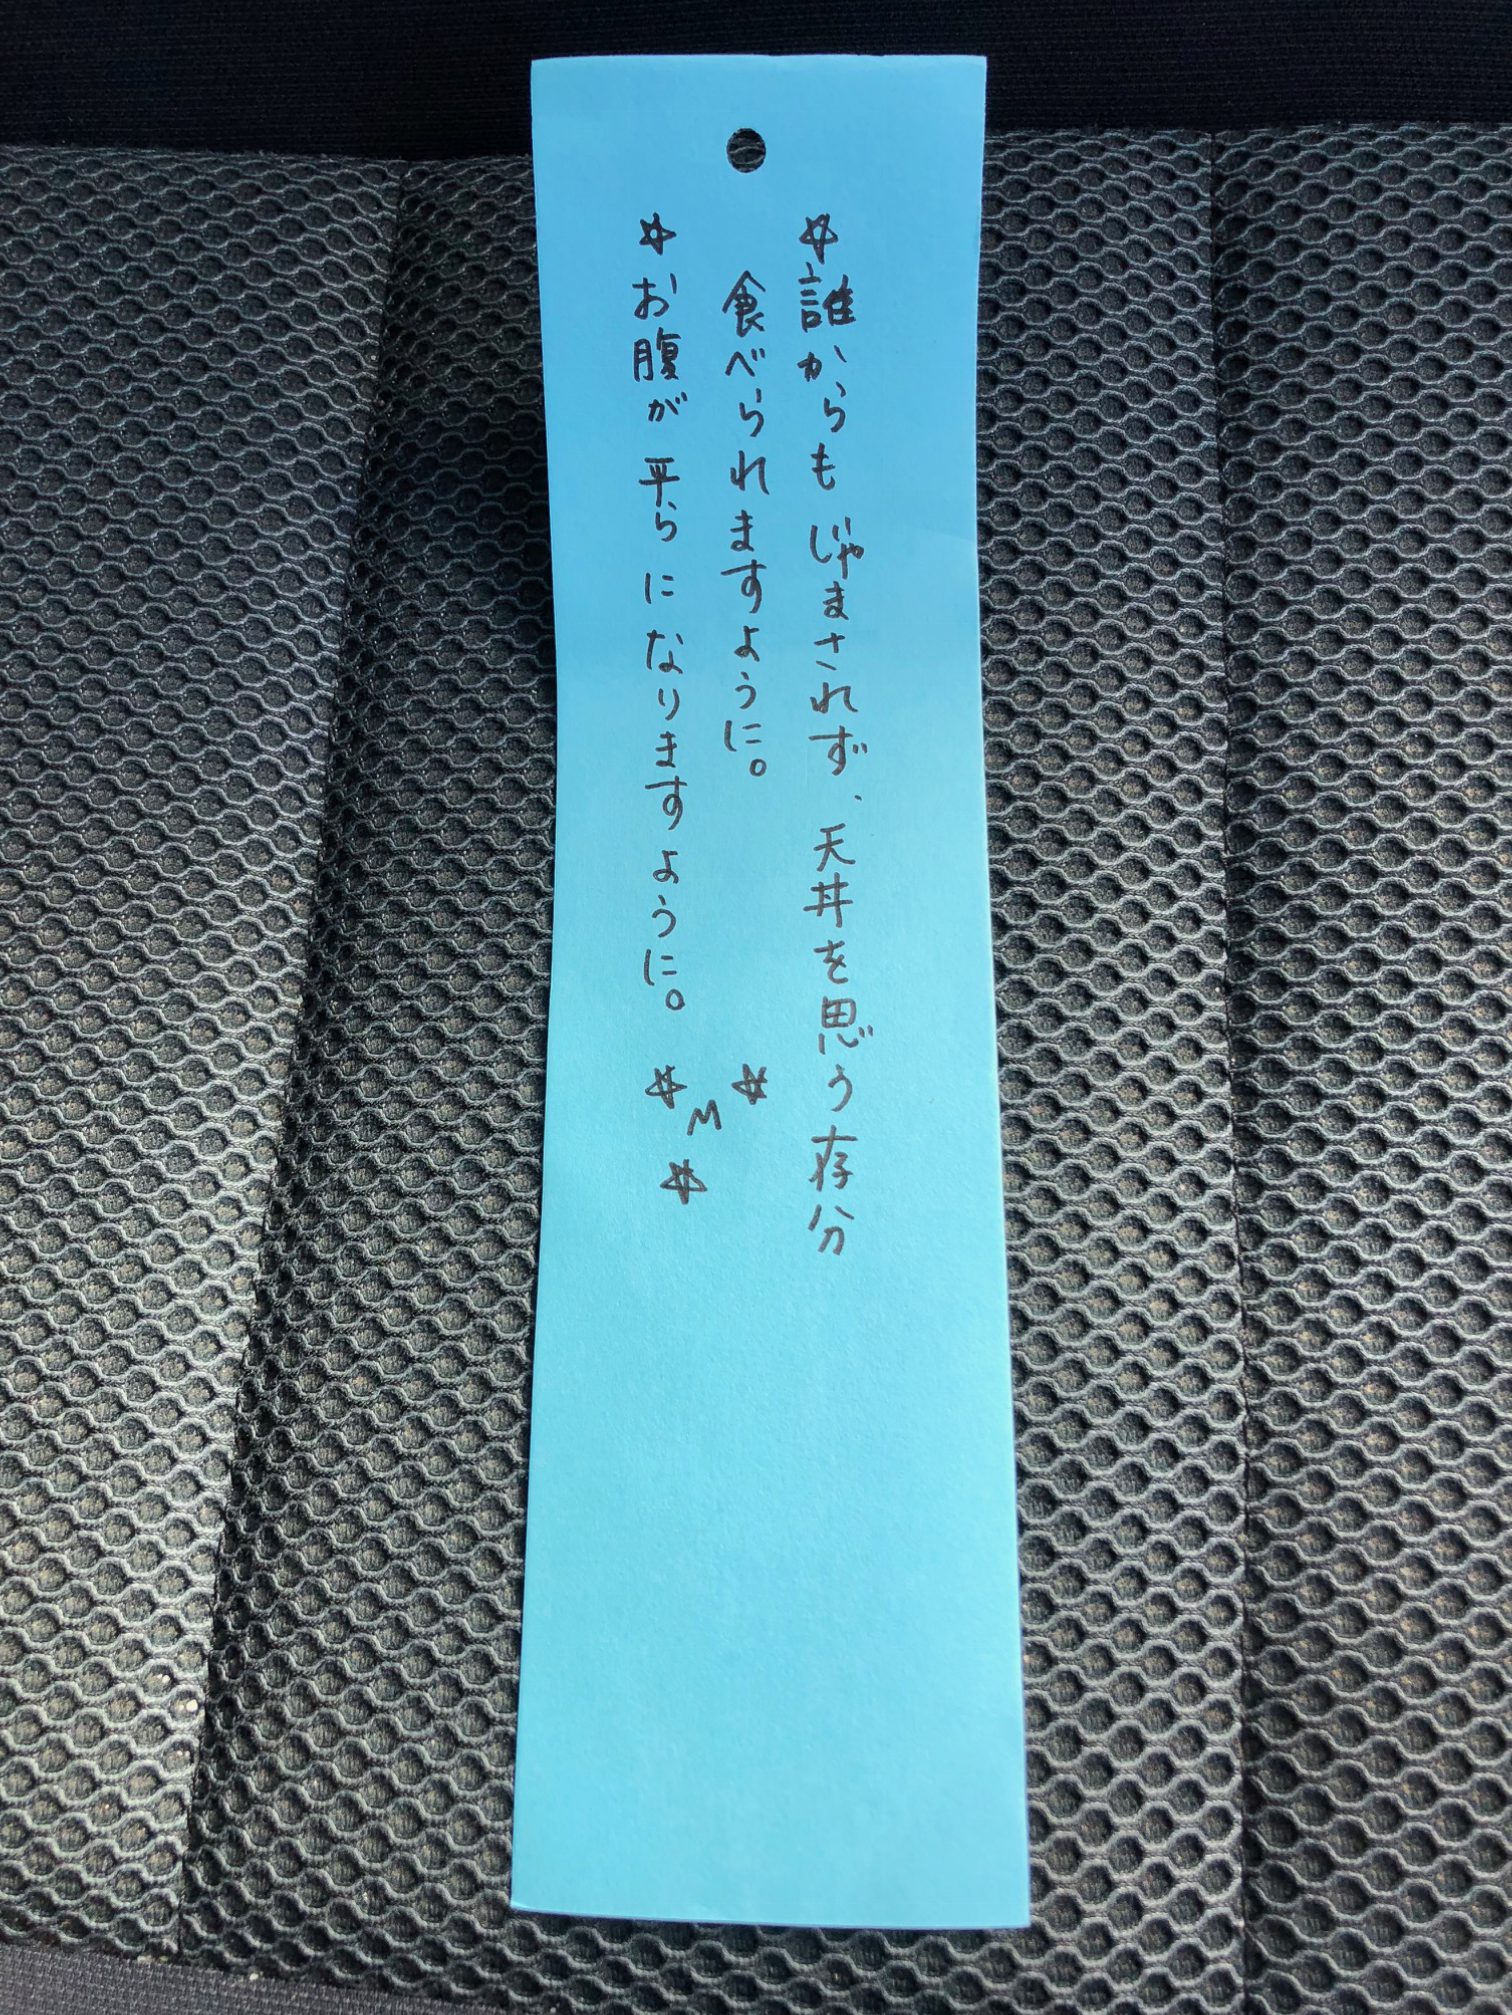 ☆誰からもじゃまされず、天丼を思う存分
食べられますように。
☆お腹が平らになりますように。
☆M☆
☆